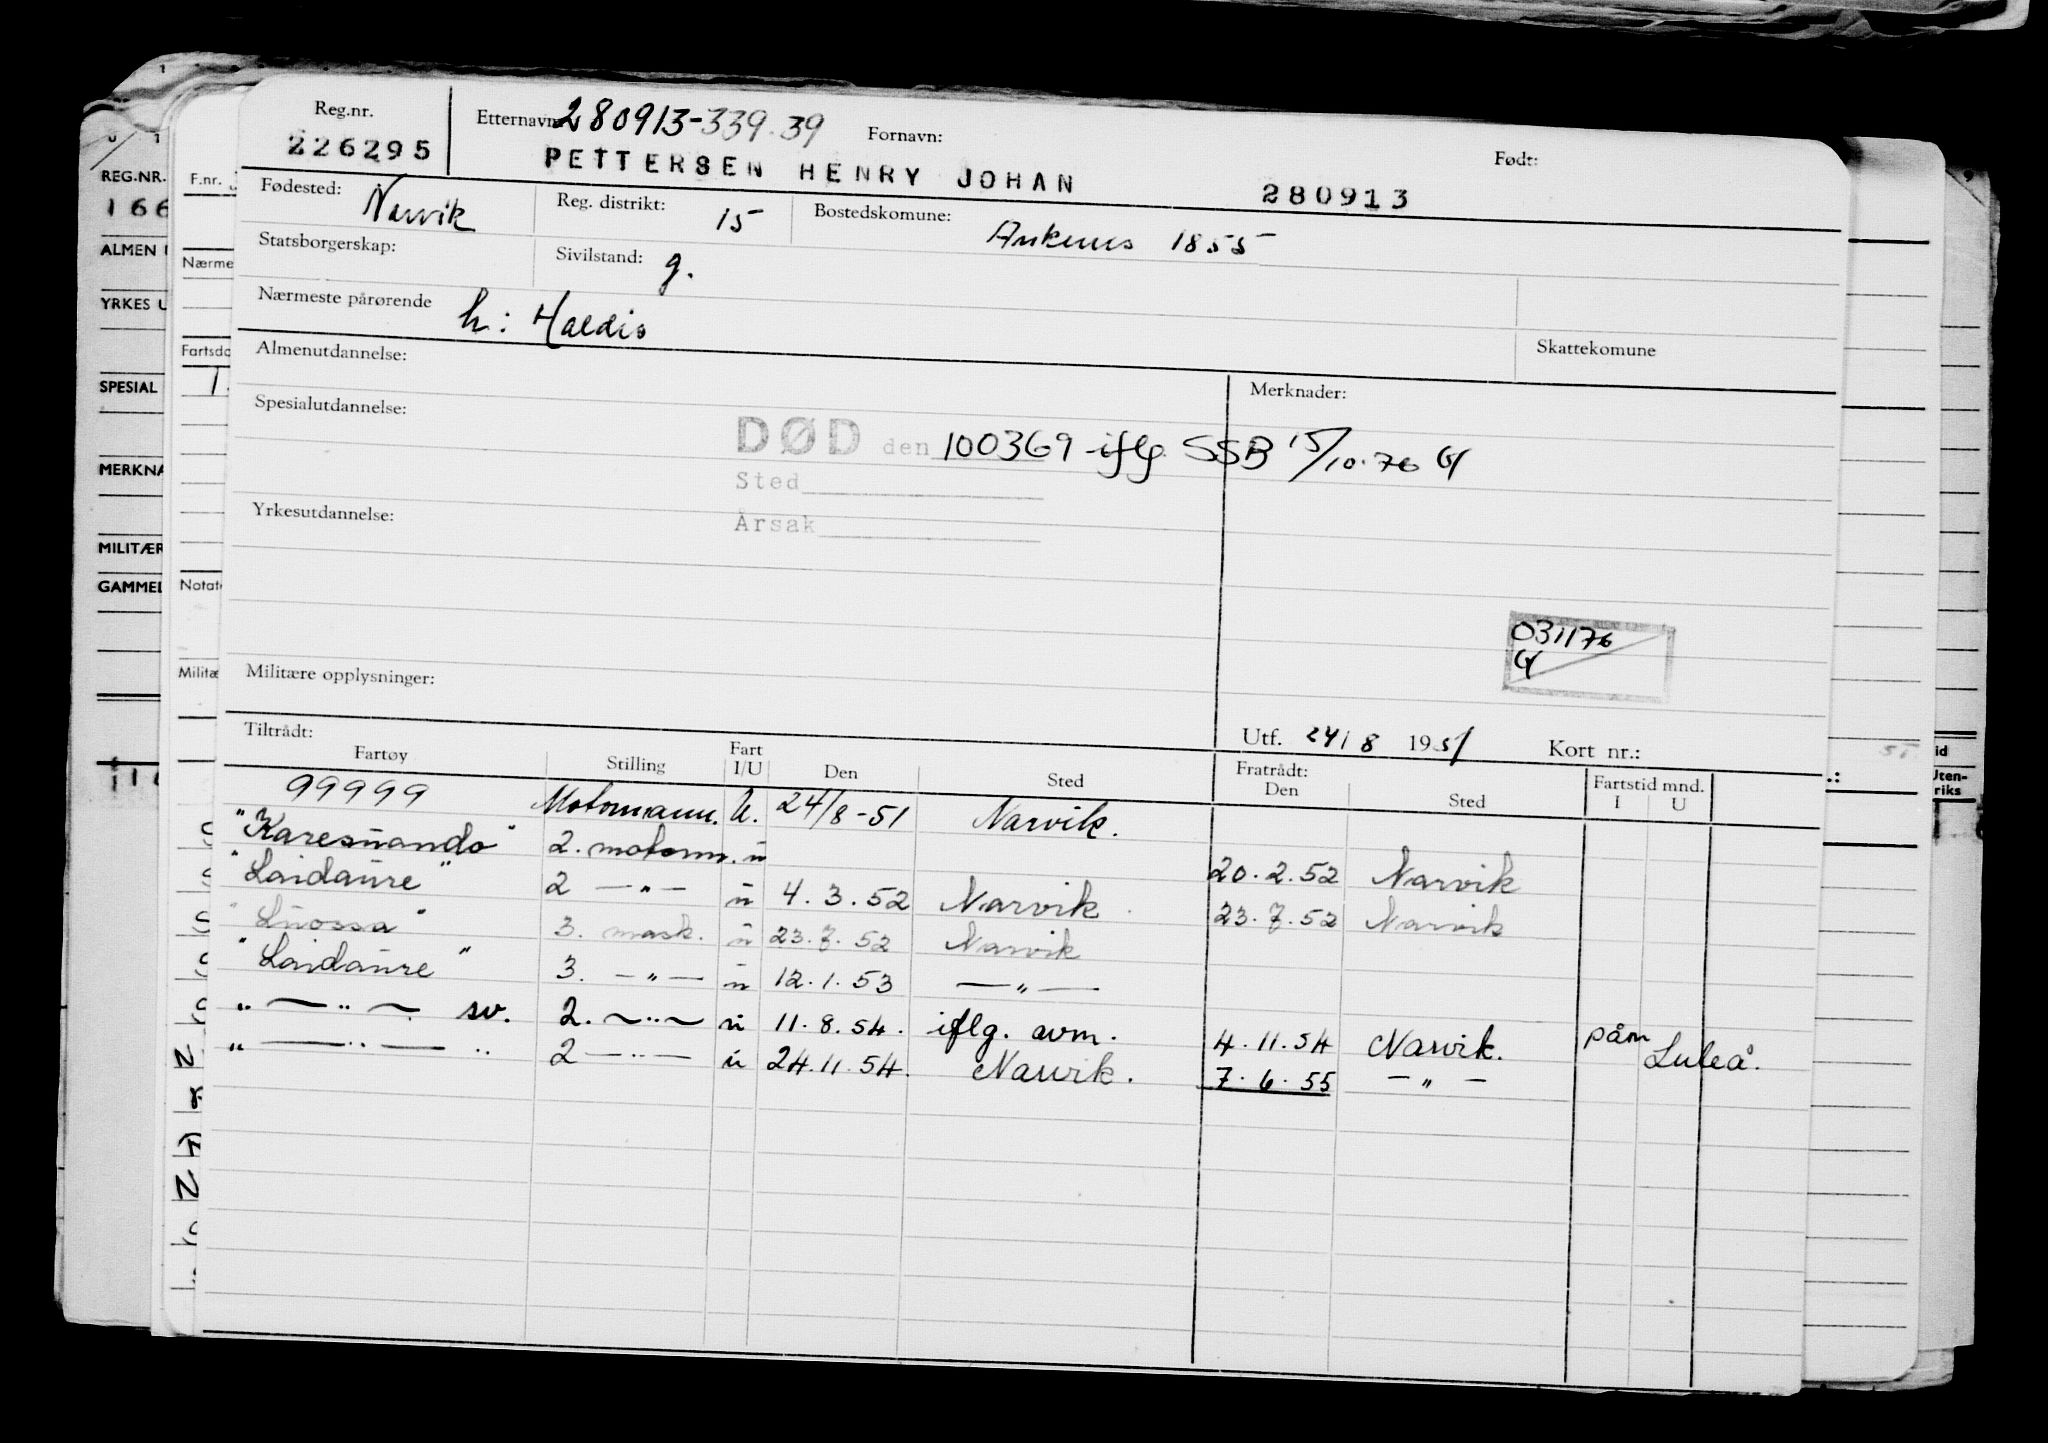 Reg.nr. Etternavn: 280913-339.39 Fornavn: Født:
226295 PETTERSEN HENRY JOHAN 280913
Fødested: Narvik Reg. distrikt: 15 Bostedskomune: Ankenes 1855
Statsborgerskap: Sivilstand: g.
Nærmeste pårørende h: Haldis
Almenutdannelse: Skattekomune
Spesialutdannelse: Merknader:
DØD den 100369 iflg. SSB 15/10.76
Sted
Yrkesutdannelse: Årsak
031176
Militære opplysninger:
Tiltrådt: Utf. 24/8 1951 Kort nr.:
Fartøy Stilling Fart I/U Den Sted Fratrådt: Den Sted Fartstid mnd. I U
99999 Motormann. U. 24/8-51 Narvik.
"Karesuando" 2. motorm. u 20.2.52 Narvik
"Laidaure" 2 —"— u 4.3.52 Narvik 23.7.52 Narvik
"Luossa" 3. mask. u 23.7.52 Narvik
"Laidaure" 3. —"— u 12.1.53 —"—
" —"— sv. 2. —"— u 11.8.54. iflg. avm. 4.11.54 Narvik. påm Luleå.
" —"— " 2 —"— u 24.11.54. Narvik. 7.6.55 —"—
REG.NR.
166
ALMEN
YRKES U
SPESIAL
MERKNA
MILITÆR
GAMMEL
F.nr.
Nærme
Fartsdo
Notat
Militæ